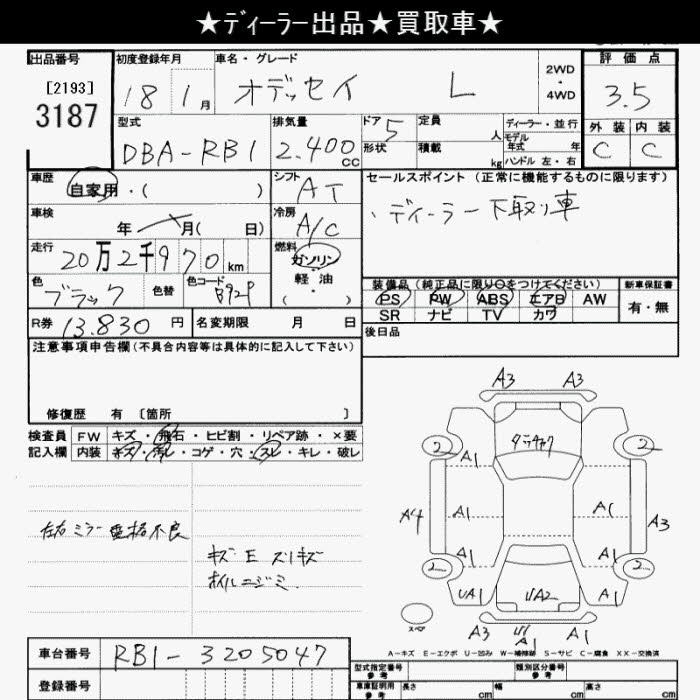 ★ディーラー出品★買取車★
出品番号 初度登録年月 車名・グレード 評価点
[2193]
3187
18 1月 オデッセイ L 2WD・4WD 3.5
型式 排気量 ドア 5 定員 人 ディーラー・並行 外装 内装
DBA-RB1 2.400cc 形状 積載 kg モデル年式 年 ハンドル 左・右 C C
車歴 自家用・( ) シフト AT セールスポイント (正常に機能するものに限ります)
車検 年 月( 日) 冷房 A/C 、ディーラー下取り車
走行 20万2千970km 燃料 ガソリン・軽油・( )
色 ブラック 色替 色コード B92P 装備品 (純正品に限り○をつけてください) 新車保証書
PS PW ABS エアB AW 有・無
SR ナビ TV カワ
R券 13.830円 名変期限 月 日 後日品
注意事項申告欄(不具合内容等は具体的に記入して下さい)
修復歴 有 [箇所 ]
検査員 FW キズ・飛石・ヒビ割・リペア跡・×要
記入欄 内装 キズ・汚レ・コゲ・穴・スレ・キレ・破レ
左右ミラー電格不良
キズ E スリキズ
オイルニジミ
A3 A3
2 2
A1
A4 A1 A1 A3
A1 A1
2 2
UA1 UA2 A1
スペア A3 A1 A1
A-キズ E-エクボ U-凹み W-補修跡 S-サビ C-腐食 XX-交換済
車台番号 RB1-3205047
登録番号
型式指定番号 参考 類別区分番号 参考
車庫証明用 参考 長さ cm 幅 cm 高さ cm